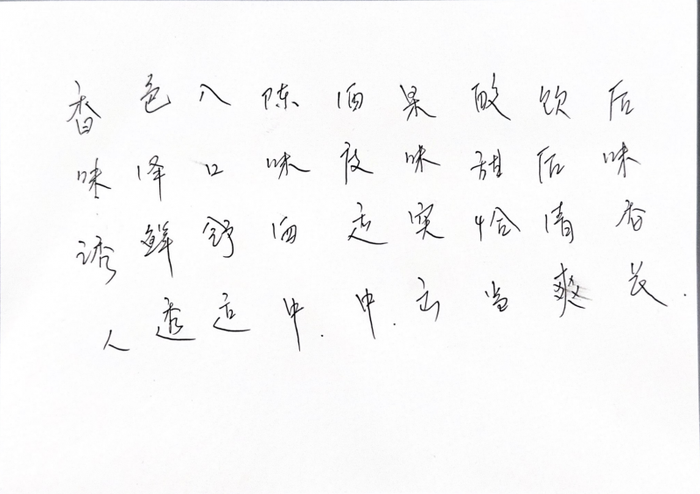 香味诱人
色泽鲜透
入口舒适
陈味酒中.
酒度适中.
果味突出
酸甜恰当
饮后清爽
后味香长.